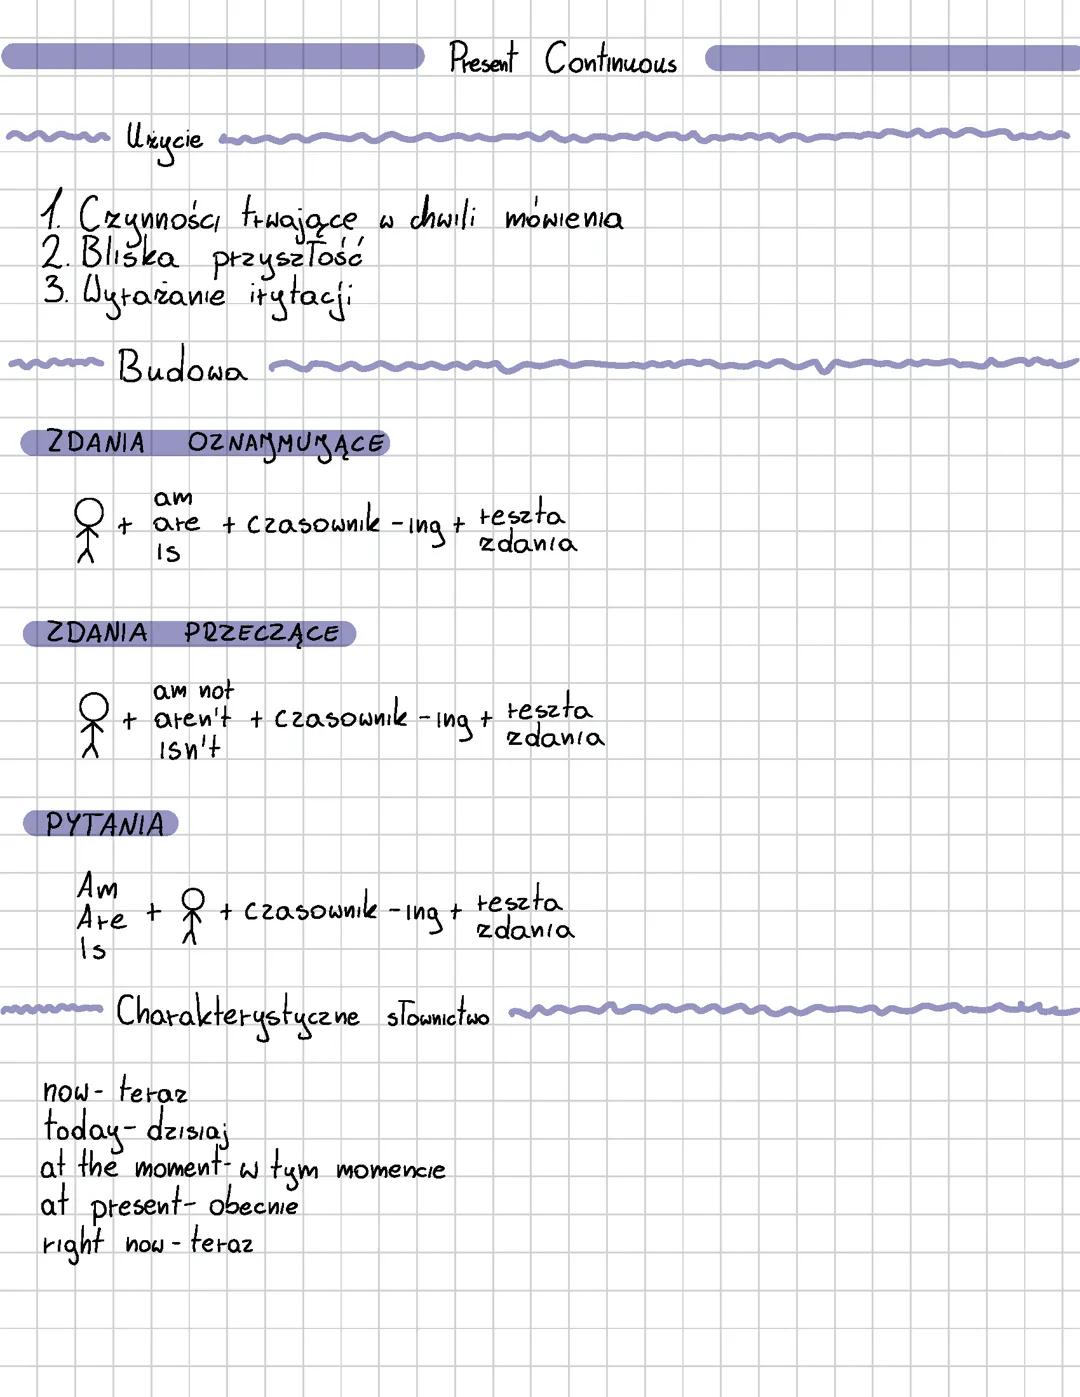 Present Continuous
Użycie
1. Czynności trwające w chwili mówienia
2. Bliska przyszłość
3. Wyrażanie irytacji
Budowa
ZDANIA OZNAJMUJĄCE
am
+ are + czasownik -ing + reszta zdania
is
ZDANIA PRZECZĄCE
am not
+ aren't + czasownik -ing + reszta zdania
isn't
PYTANIA
Am
Are + + czasownik -ing + reszta zdania
Is
Charakterystyczne słownictwo
now- teraz
today- dzisiaj
at the moment- w tym momencie
at present- obecnie
right now - teraz